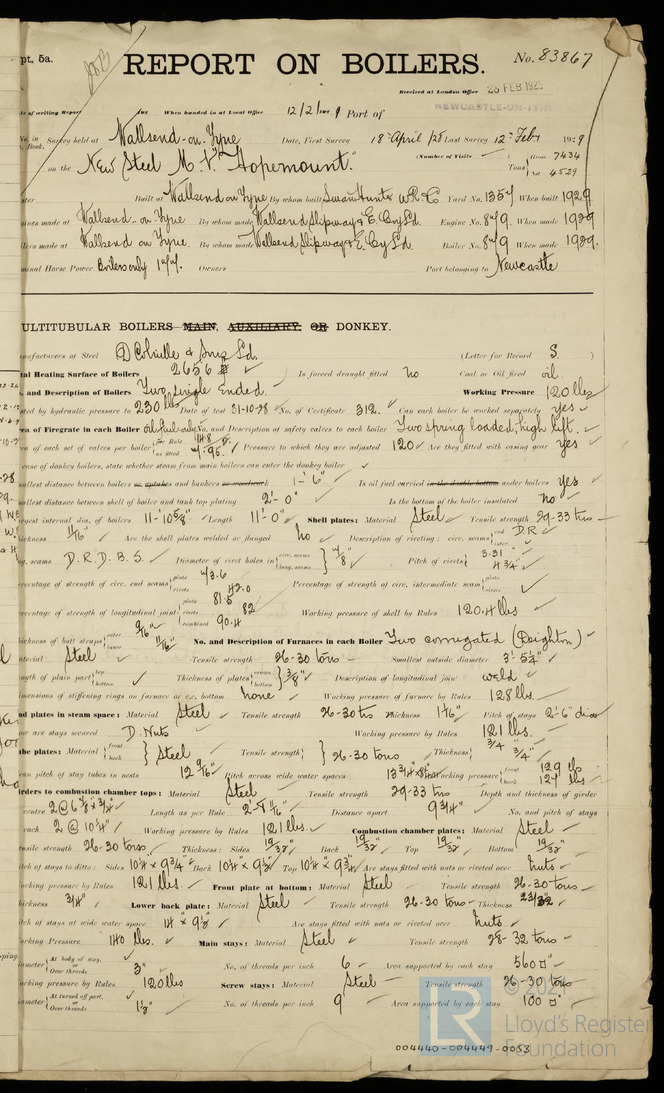 pt. 5a.
REPORT ON BOILERS.
No. 83867
Received at London Office 26 FEB 1929
NEWCASTLE-ON-TYNE
of writing Report When handed in at Local Office 12/2/1929 Port of
Survey held at Wallsend-on-Tyne Date, First Survey 18th April /28 Last Survey 12th Feby 1929
Book.
on the New Steel M.V. "Hopemount." (Number of Visits ) Tons Gross 7434 Net 4529
Built at Wallsend on Tyne By whom built Swan Hunter W.R. Co Yard No. 1357 When built 1929
made at Wallsend-on-Tyne By whom made Wallsend Slipway & E. Coy Ld. Engine No. 849 When made 1929
made at Wallsend on Tyne. By whom made Wallsend Slipway & E. Coy Ld. Boiler No. 849 When made 1929.
Horse Power Boilers only Owners Port belonging to Newcastle
ULTITUBULAR BOILERS MAIN, AUXILIARY, OR DONKEY.
of Steel D Colville & Sons Ld. (Letter for Record S. )
Heating Surface of Boilers 2656 Is forced draught fitted no Coal or Oil fired oil.
and Description of Boilers Two, single Ended. Working Pressure 120 lbs
by hydraulic pressure to 230 lbs Date of test 31-10-28 No. of Certificate 312. Can each boiler be worked separately yes
of Firegrate in each Boiler oil fuel only No. and Description of safety valves to each boiler Two spring loaded, high lift.
of each set of valves per boiler Pressure to which they are adjusted 120 Are they fitted with easing gear yes
case of donkey boilers, state whether steam from main boilers can enter the donkey boiler
distance between boilers or uptakes and bunkers or woodwork 1-6" Is oil fuel carried in the double bottom under boilers Yes
distance between shell of boiler and tank top plating 2'-0" Is the bottom of the boiler insulated no
internal dia. of boilers 11'-10 5/8" Length 11'-0" Shell plates: Material Steel Tensile strength 29-33 tons
1/16" Are the shell plates welded or flanged no Description of riveting: circ. seams end D.R.
seams D.R.D.B.S. Diameter of rivet holes in circ. seams long. seams 7/8" Pitch of rivets 3.31 4 3/4"
of circ. end seams plate rivets 42.0 Percentage of strength of circ. intermediate seam plate rivets
of longitudinal joint plate 81.5 rivets 82 combined 90.4 Working pressure of shell by Rules 120.4 lbs
of butt straps outer 9/16" inner 11/16" No. and Description of Furnaces in each Boiler Two corrugated (Deighton)
Steel Tensile strength 26-30 tons Smallest outside diameter 3'-5 1/4"
of plain part top bottom Thickness of plates crown bottom 3/8" Description of longitudinal joint weld
of stiffening rings on furnace or c.c. bottom none Working pressure of furnace by Rules 128 lbs.
plates in steam space: Material Steel Tensile strength 26-30 tns Thickness Pitch of stays 2'-6" dia
are stays secured D. Nuts Working pressure by Rules 121 lbs.
plates: Material front back Steel Tensile strength 26-30 tons Thickness 3/4" 3/4"
pitch of stay tubes in nests 12 9/16" Pitch across wide water spaces Working pressure front 129 lbs back 127 lbs
to combustion chamber tops: Material Steel Tensile strength 29-33 tns Depth and thickness of girder
centre 2@6 7/8" x 3/4" Length as per Rule Distance apart 9 3/4" No. and pitch of stays
each 2 @ 10 1/4" Working pressure by Rules 121 lbs. Combustion chamber plates: Material Steel
strength 26-30 tons Thickness: Sides 19/32" Back 19/32" Top 19/32" Bottom 19/32"
of stays to ditto: Sides 10 1/4" x 9 3/4" Back 10 1/4" x 9 1/2" Top 10 1/4" x 9 3/4" Are stays fitted with nuts or riveted over nuts
pressure by Rules 121 lbs. Front plate at bottom: Material Steel Tensile strength 26-30 tons
3/4" Lower back plate: Material Steel Tensile strength 26-30 tons Thickness 23/32
of stays at wide water space 14" x 9 1/2" Are stays fitted with nuts or riveted over nuts
Pressure 140 lbs. Main stays: Material Steel Tensile strength 28-32 tons
At body of stay, or Over threads 3" No. of threads per inch 6 Area supported by each stay 560 □"
pressure by Rules 120 lbs Screw stays: Material Steel Tensile strength 26-30 tons
At turned off part, or Over threads 1 1/2" No. of threads per inch 9 Area supported by each stay 100 □"
© 2021
LR
Lloyd's Register
Foundation
004440-004449-0053